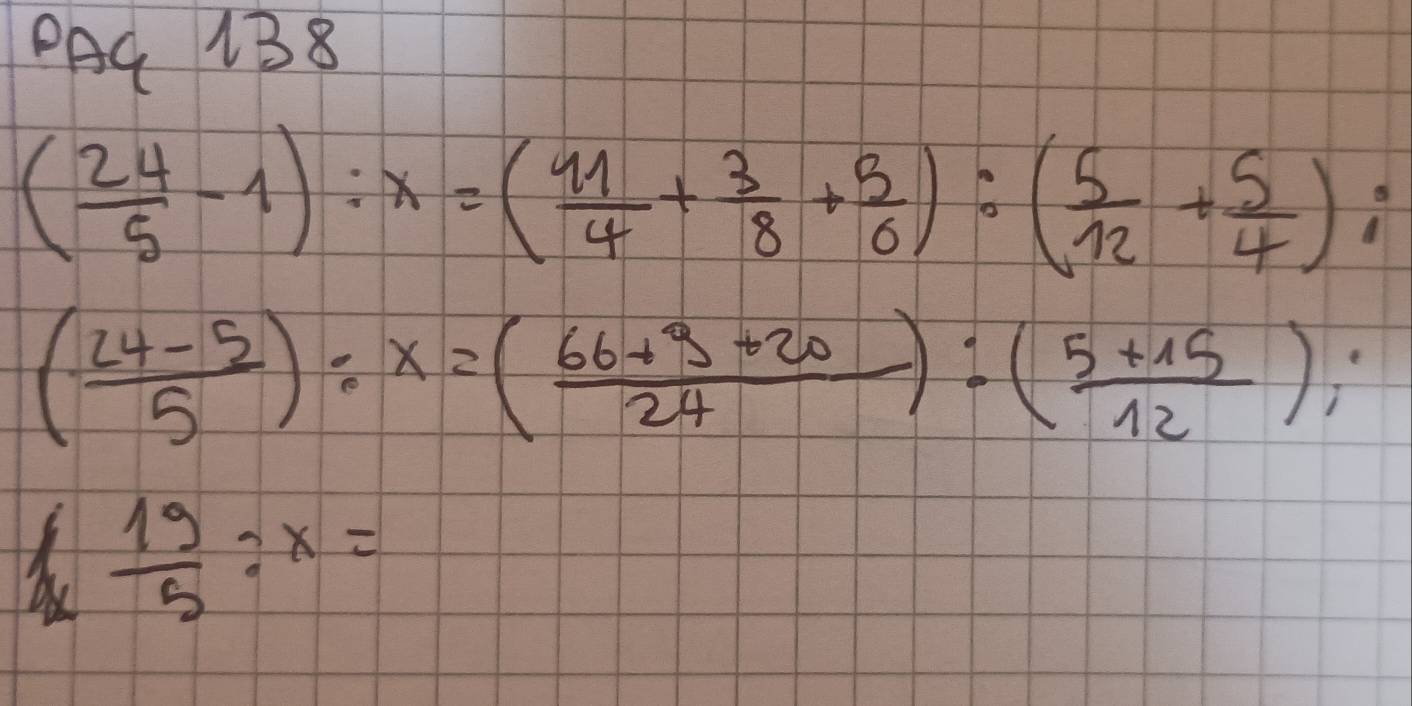 PAG 138
(24/5 - 1) : x = (11/4 + 3/8 + 5/6) : (5/12 + 5/4);
((24-5)/5) : x = ((66+9+20)/24) : ((5+15)/12);
19/5 : x =